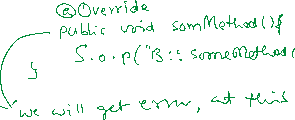 @Override
public void somMethod(){
S.o.p("B:: someMethod(
}
we will get error, at this